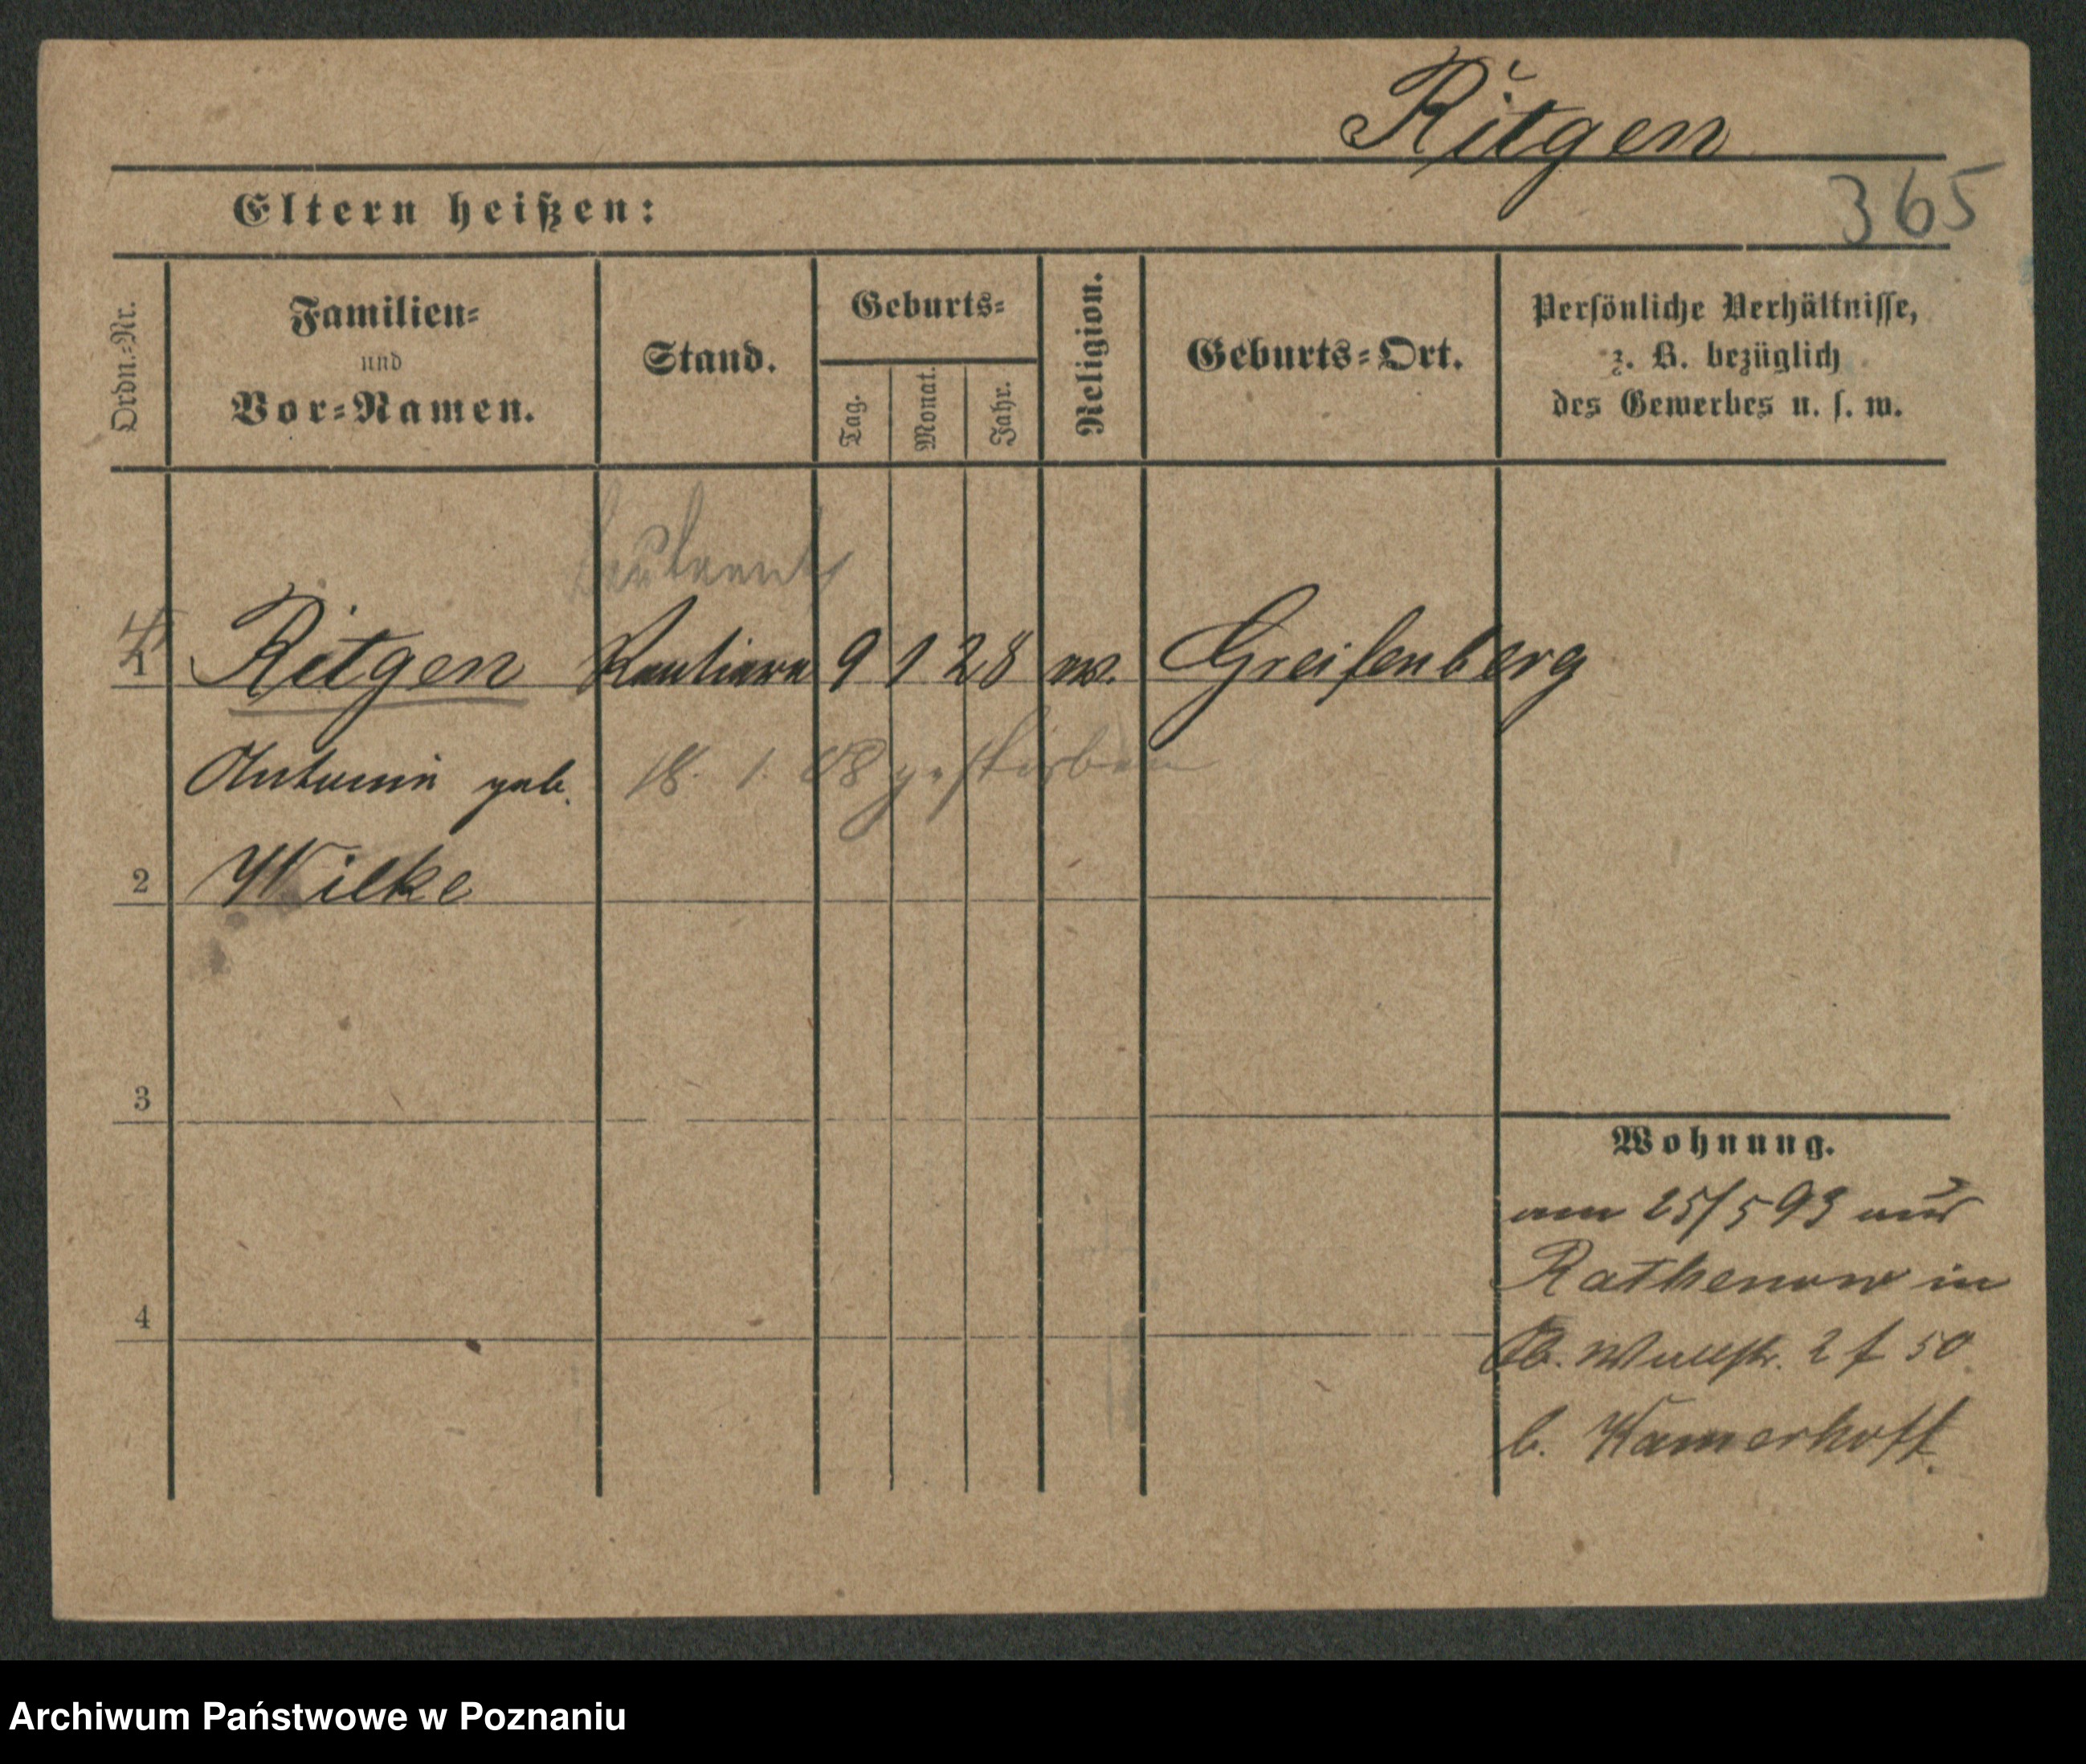 Ritgen
365
Eltern heißen:
Ordn.=Nr.
Familien=
und
Vor=Namen.
Stand.
Geburts=
Tag.
Monat.
Jahr.
Religion.
Geburts=Ort.
Persönliche Verhältnisse,
z. B. bezüglich
des Gewerbes u. s. w.
1 Ritgen Rentiere 9 1 28 ev. Greifenberg
Antonie geb. 18. 1. 98 gestorben
2 Wilke
3
4
Wohnung.
am 25/5 93 aus
Rathenow in
2 f 50
b. Kamerhoff.
Archiwum Państwowe w Poznaniu